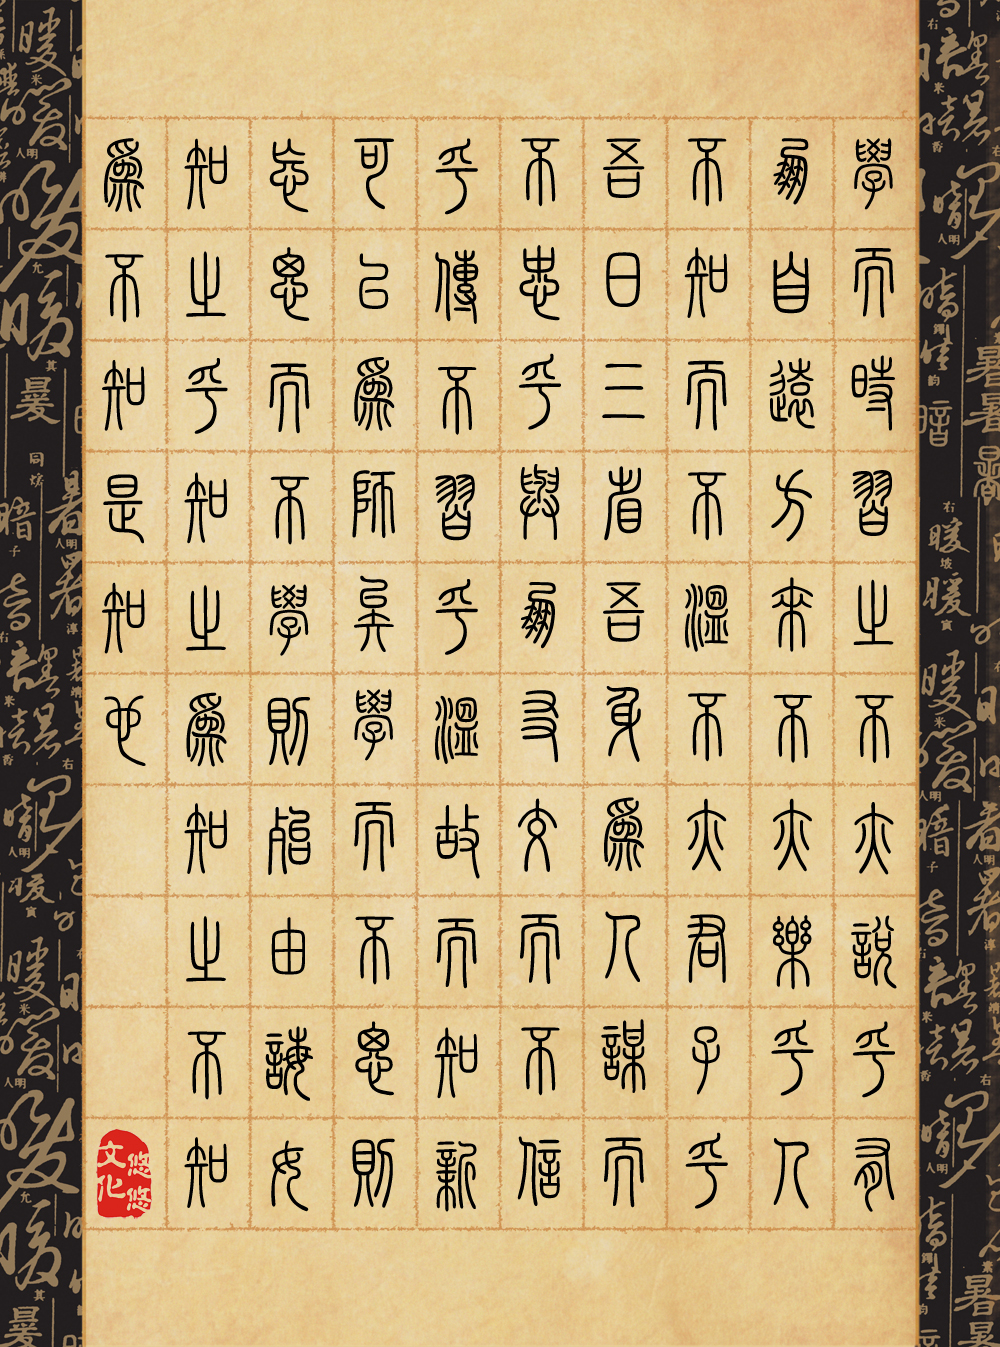 學而時習之不亦說乎有
朋自遠方來不亦樂乎人
不知而不溫不亦君子乎
吾日三省吾身為人謀而
不忠乎與朋友交而不信
乎傳不習乎溫故而知新
可以為師矣學而不思則
忘思而不學則殆由誨女
知之乎知之為知之不知
為不知是知也
悠悠文化